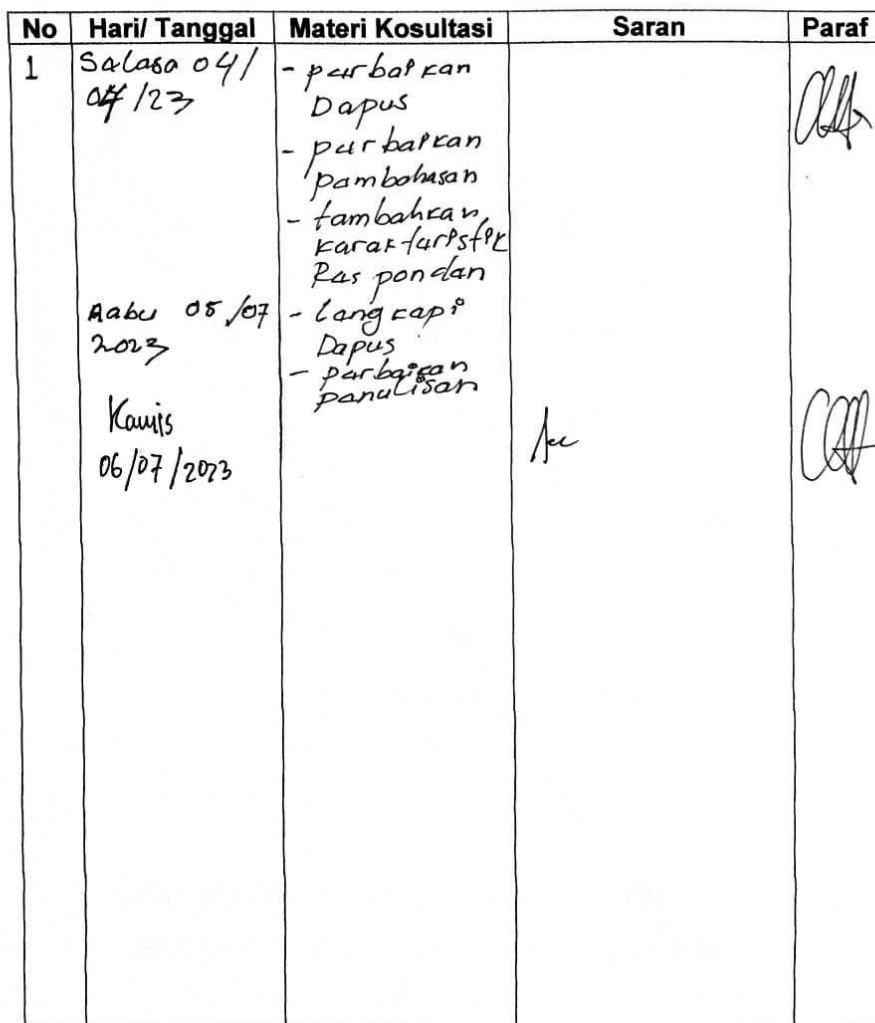 No Hari/ Tanggal Materi Kosultasi Saran Paraf
1 Selasa 04/ - perbaikan
07/23 Dapus
- perbaikan
pembahasan
- tambahkan
karakteristik
Responden
Rabu 05/07 - lengkapi
2023 Dapus
- perbaikan
penulisan
Kamis
06/07/2023 Acc